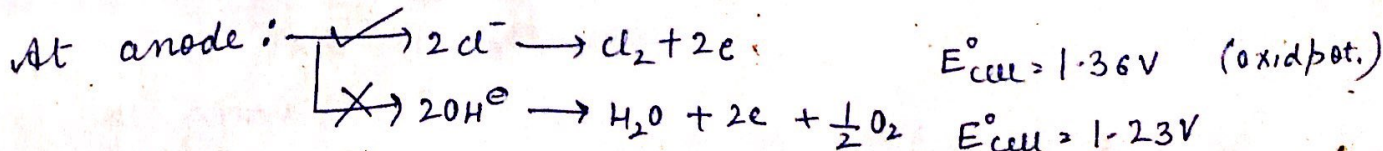 At anode : ✓→ 2Cl⁻ → Cl₂ + 2e. E°cell = 1.36V (oxidpot.)
✗→ 2OH⊖ → H₂O + 2e + ½O₂ E°cell = 1.23V